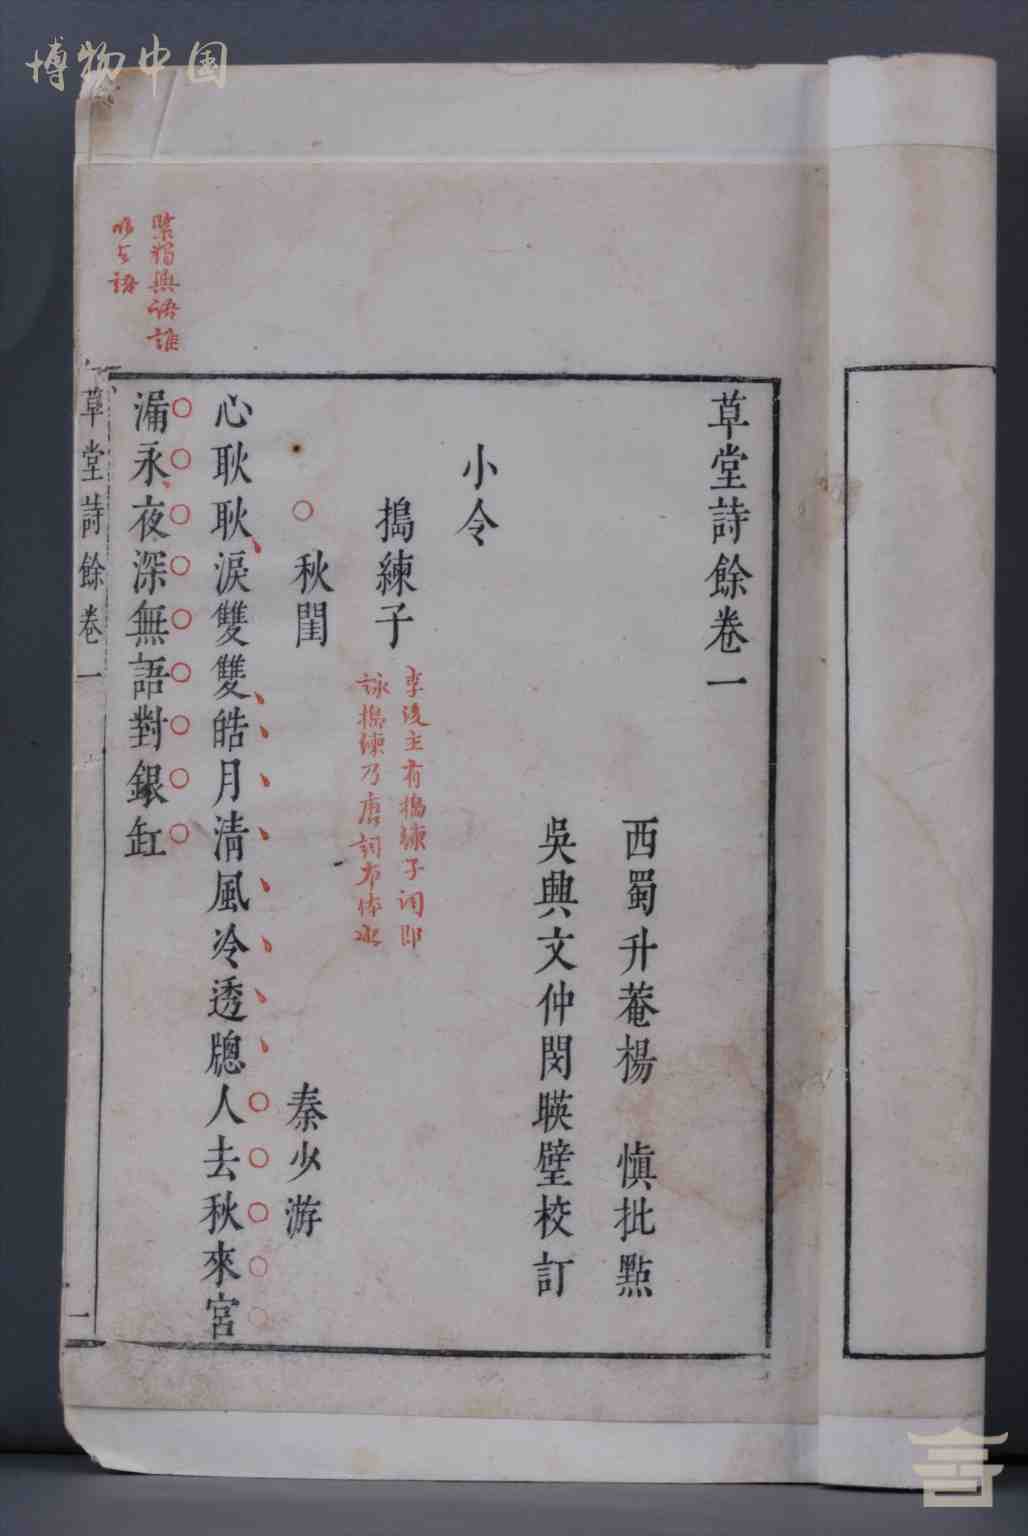 博物中国
草堂詩餘卷一
西蜀升菴楊 慎批點
吳興文仲閔暎璧校訂
小令
搗練子
李後主有搗練子詞即
詠搗練乃唐詞本体
秋閨
秦少游
心耿耿淚雙雙皓月清風冷透牕人去秋來宮
漏永夜深無語對銀缸
語誰
語
草堂詩餘卷一
一